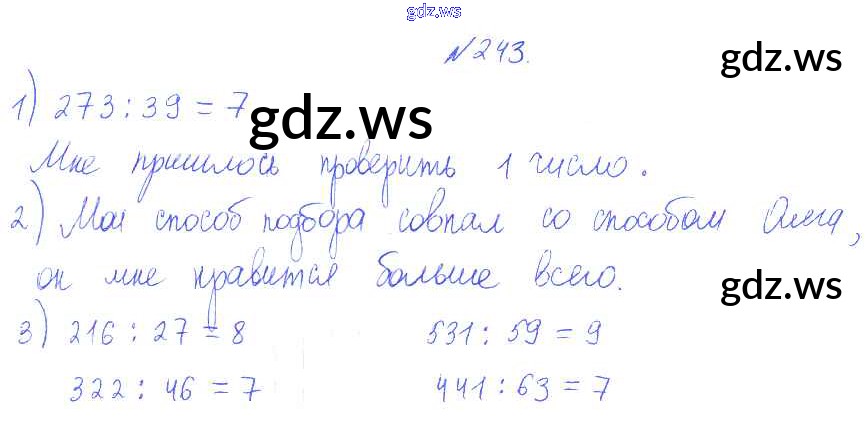 gdz.ws
№243.
gdz.ws
1) 273 : 39 = 7
gdz.ws
Мне пришлось проверить 1 число.
2) Мой способ подбора совпал со способом Олега,
он мне нравится больше всего.
gdz.ws
3) 216 : 27 = 8 531 : 59 = 9
322 : 46 = 7 441 : 63 = 7